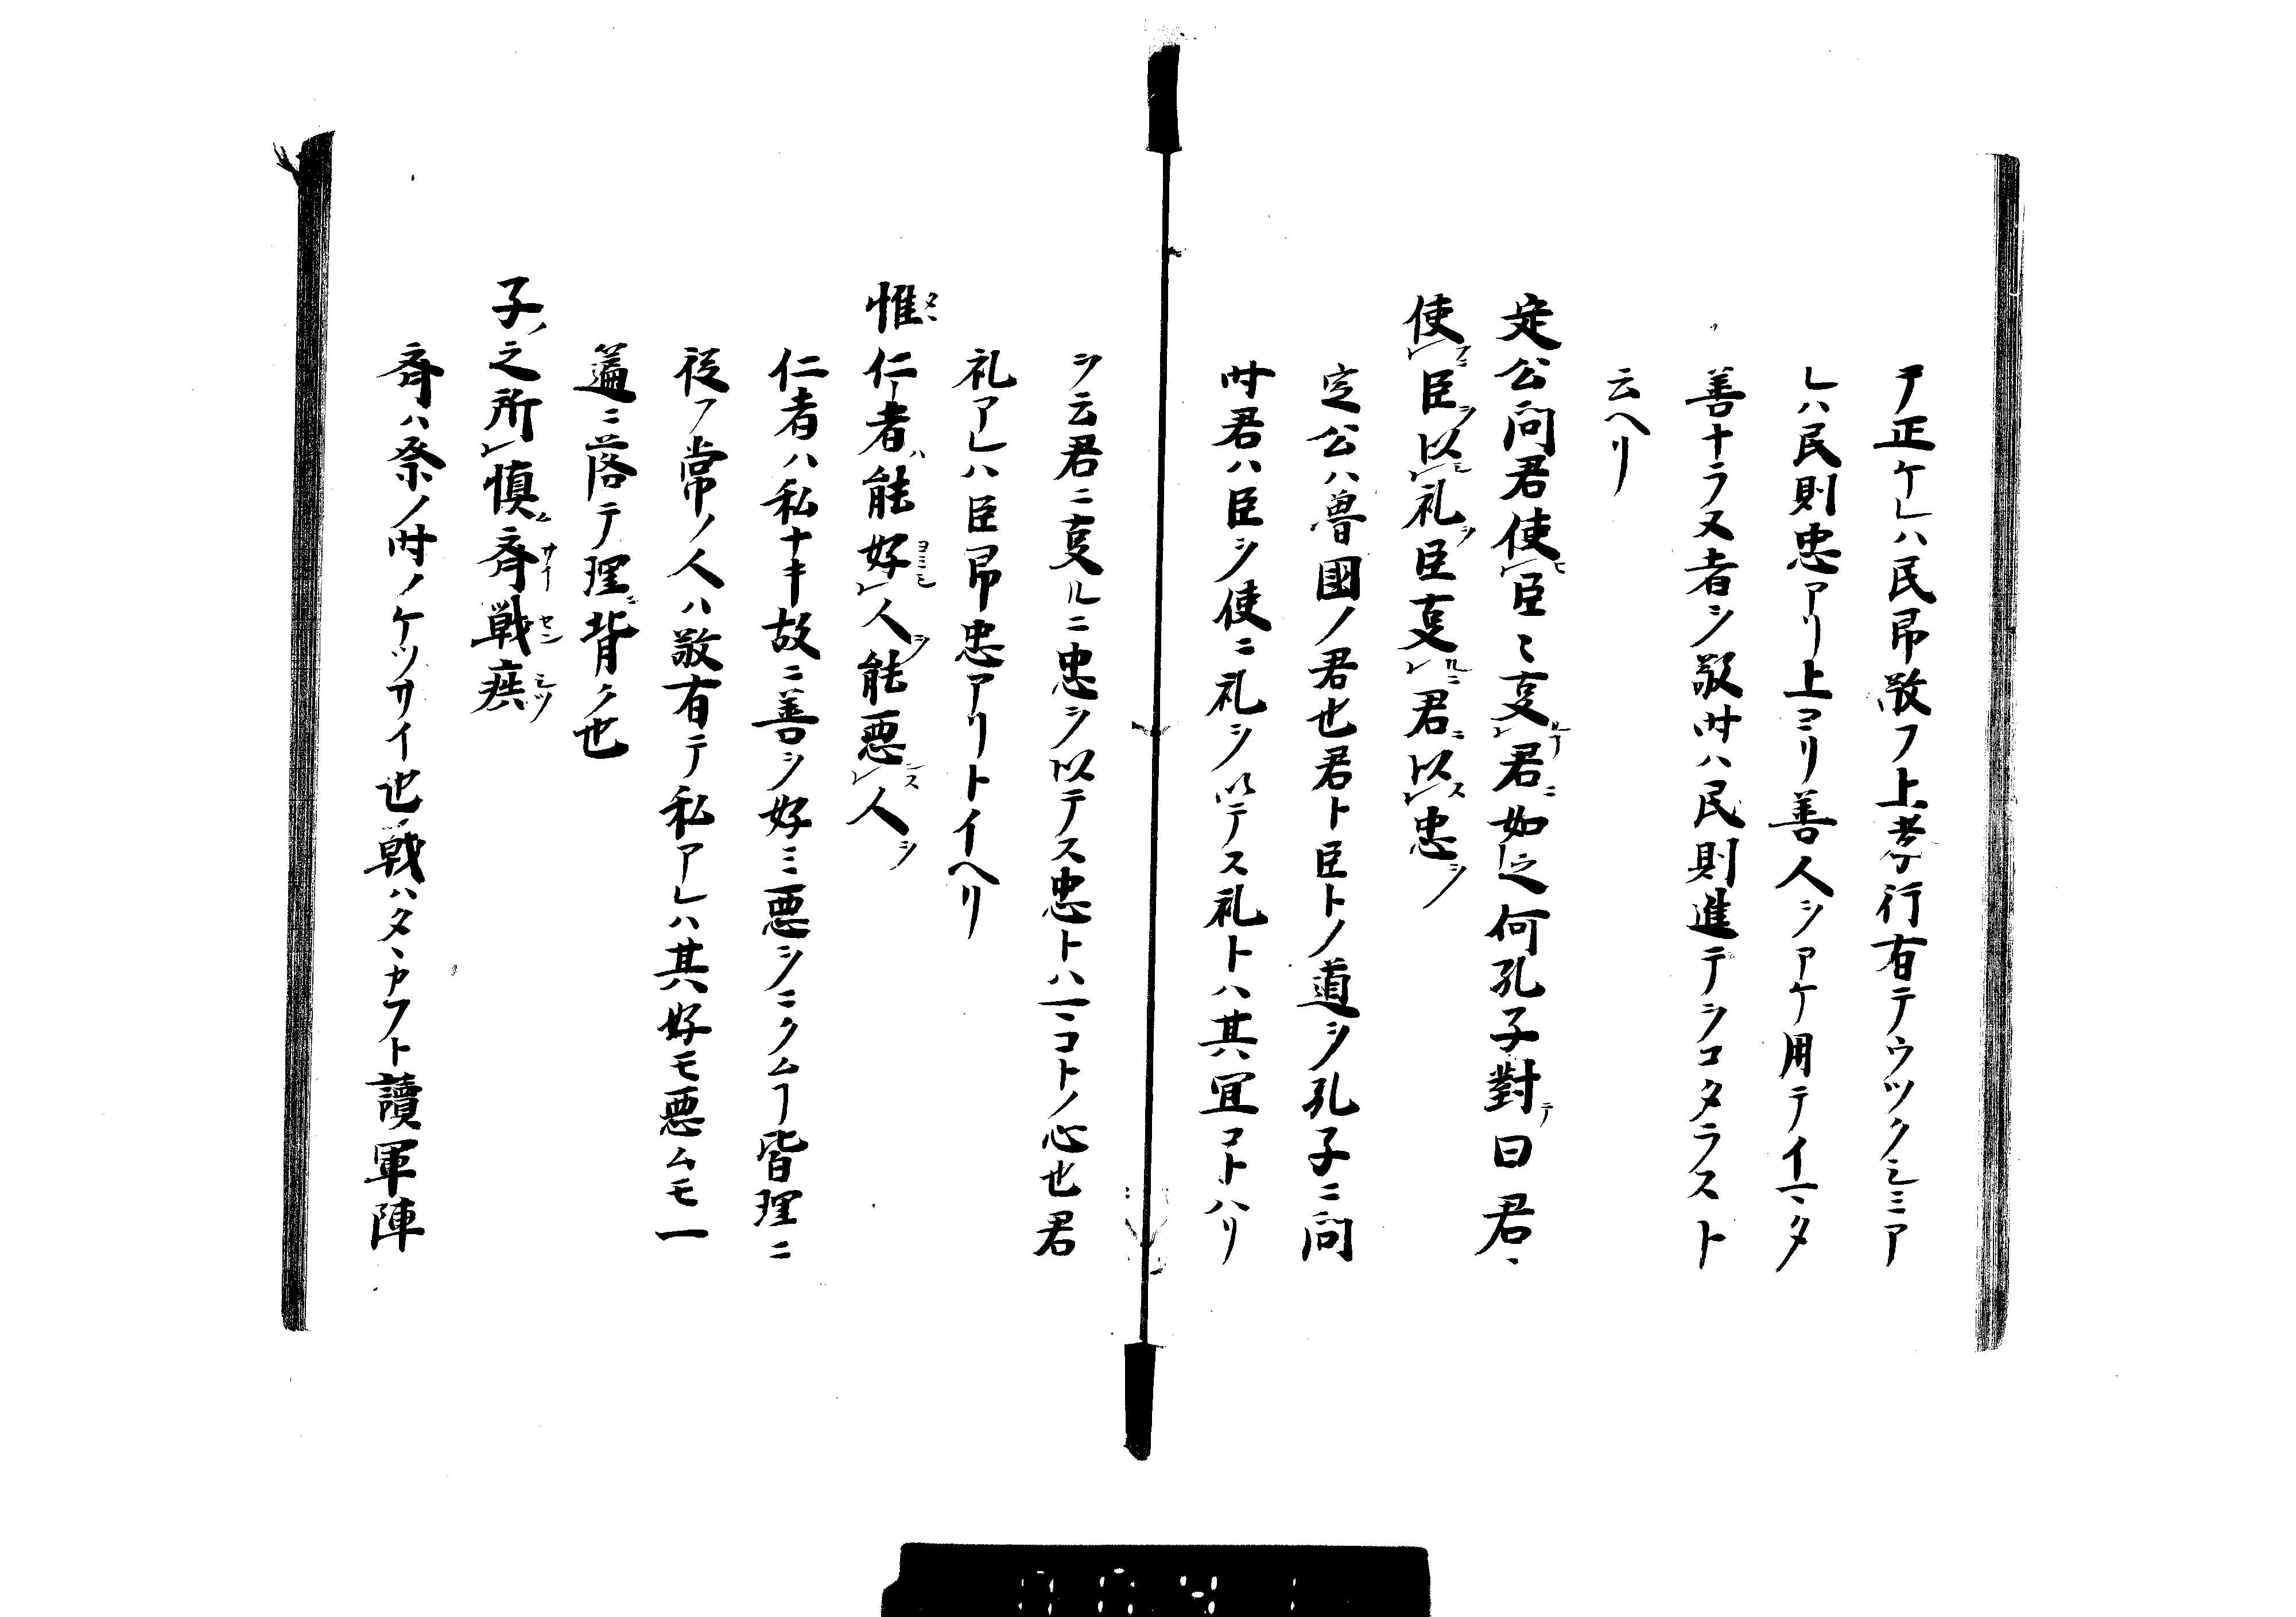 ヲ正ケレハ民昂敬フ上孝行有テウツクシミア
レハ民則忠アリ上ヨリ善人ヲアケ用テイマタ
善ナラヌ者ヲ敬時ハ民則進テヲコタラスト
云ヘリ
定公問君使臣〻事君如之何孔子對テ曰君〻
使臣ヲ以礼ヲ臣事ルニ君ニ以ス忠ヲ
定公ハ魯國ノ君也君ト臣トノ道ヲ孔子ニ問
時君ハ臣ヲ使ニ礼ヲ以テス礼トハ其宜コトハリ
ヲ云君ニ事ルニ忠ヲ以テス忠トハマコトノ心也君
礼アレハ臣昂忠アリトイヘリ
惟仁者ハ能好人ヲ能悪人ヲ
仁者ハ私ナキ故ニ善ヲ好ミ悪ヲニクムヿ皆理ニ
従フ常ノ人ハ敬有テ私アレハ其好モ悪ムモ一
遍ニ落テ理ニ背ク也
子ノ之所慎ム斉戦疾
斉ハ祭ノ時ノケツサイ也戦ハタヽカフト讀軍陣